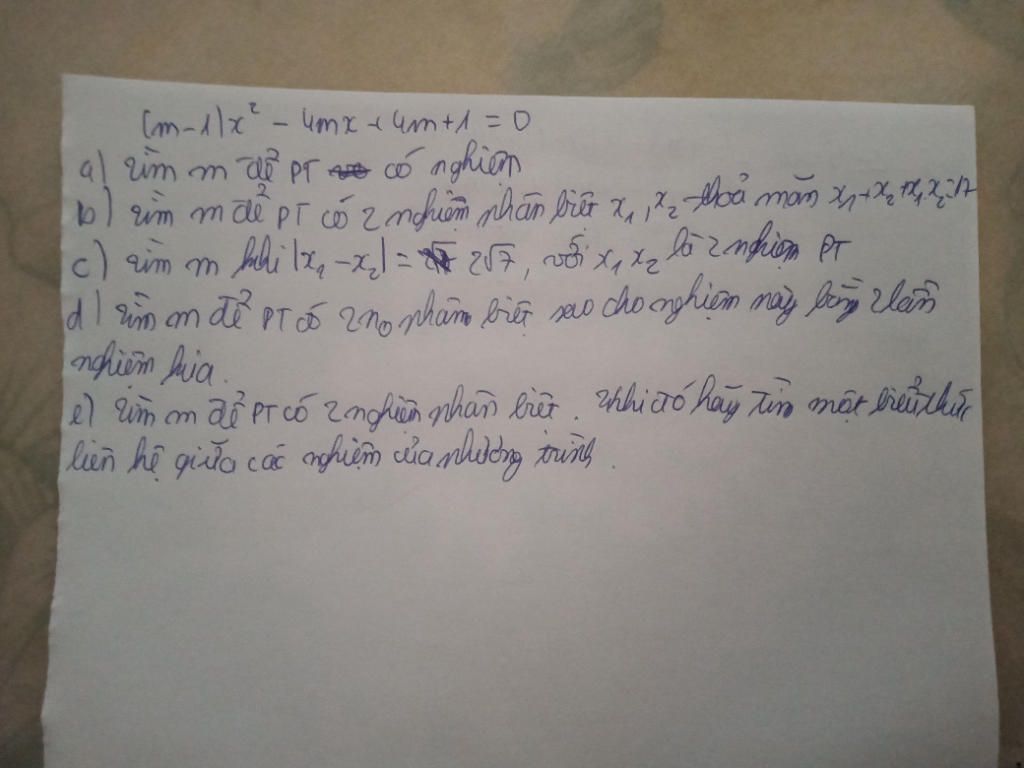 (m-1)x² - 4mx + 4m+1 = 0
a) Tìm m để PT có nghiệm
b) Tìm m để PT có 2 nghiệm phân biệt x₁, x₂ thoả mãn x₁+x₂+x₁.x₂=17
c) Tìm m khi |x₁-x₂| = 2√7, với x₁ x₂ là 2 nghiệm PT
d) Tìm m để PT có 2 n₀ phân biệt sao cho nghiệm này bằng 2 lần
nghiệm kia.
e) Tìm m để PT có 2 nghiệm phân biệt. Khi đó hãy tìm một biểu thức
liên hệ giữa các nghiệm của phương trình.